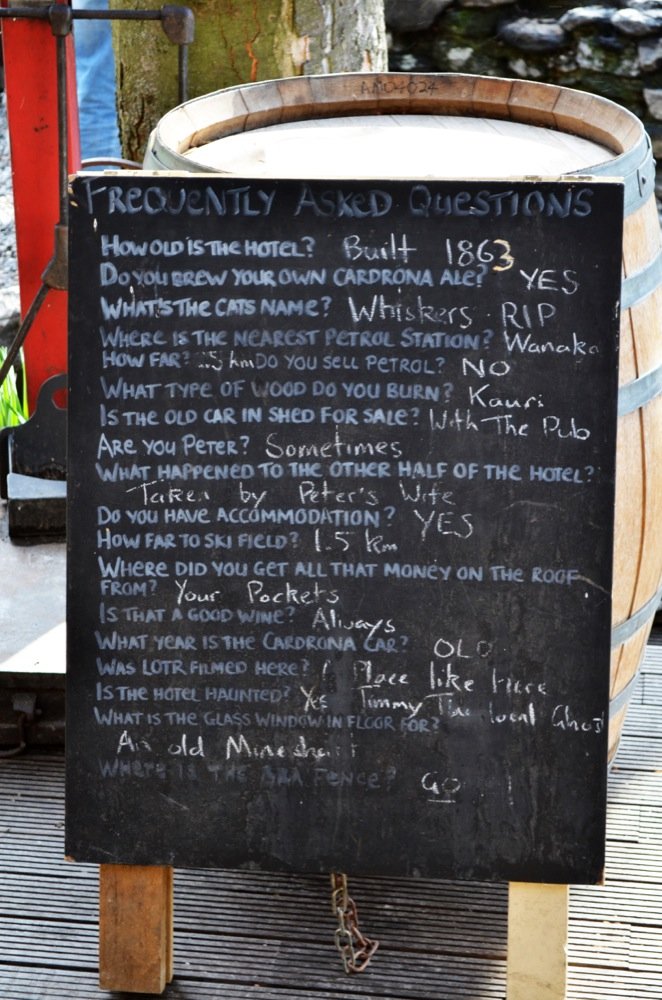 AND4024
FREQUENTLY ASKED QUESTIONS
HOW OLD IS THE HOTEL? Built 1863
DO YOU BREW YOUR OWN CARDRONA ALE? YES
WHAT'S THE CATS NAME? Whiskers RIP
WHERE IS THE NEAREST PETROL STATION? Wanaka
HOW FAR? km DO YOU SELL PETROL? NO
WHAT TYPE OF WOOD DO YOU BURN? Kauri
IS THE OLD CAR IN SHED FOR SALE? With The Pub
ARE YOU PETER? Sometimes
WHAT HAPPENED TO THE OTHER HALF OF THE HOTEL?
Taken by Peter's Wife
DO YOU HAVE ACCOMMODATION? YES
HOW FAR TO SKI FIELD? 1.5 km
WHERE DID YOU GET ALL THAT MONEY ON THE ROOF
FROM? Your Pockets
IS THAT A GOOD WINE? Always
WHAT YEAR IS THE CARDRONA CAR? OLD
WAS LOTR FILMED HERE? Place like Here
IS THE HOTEL HAUNTED? Yes Timmy The local Ghost
WHAT IS THE GLASS WINDOW IN FLOOR FOR?
An old Mineshaft
WHERE IS THE BRA FENCE? GO